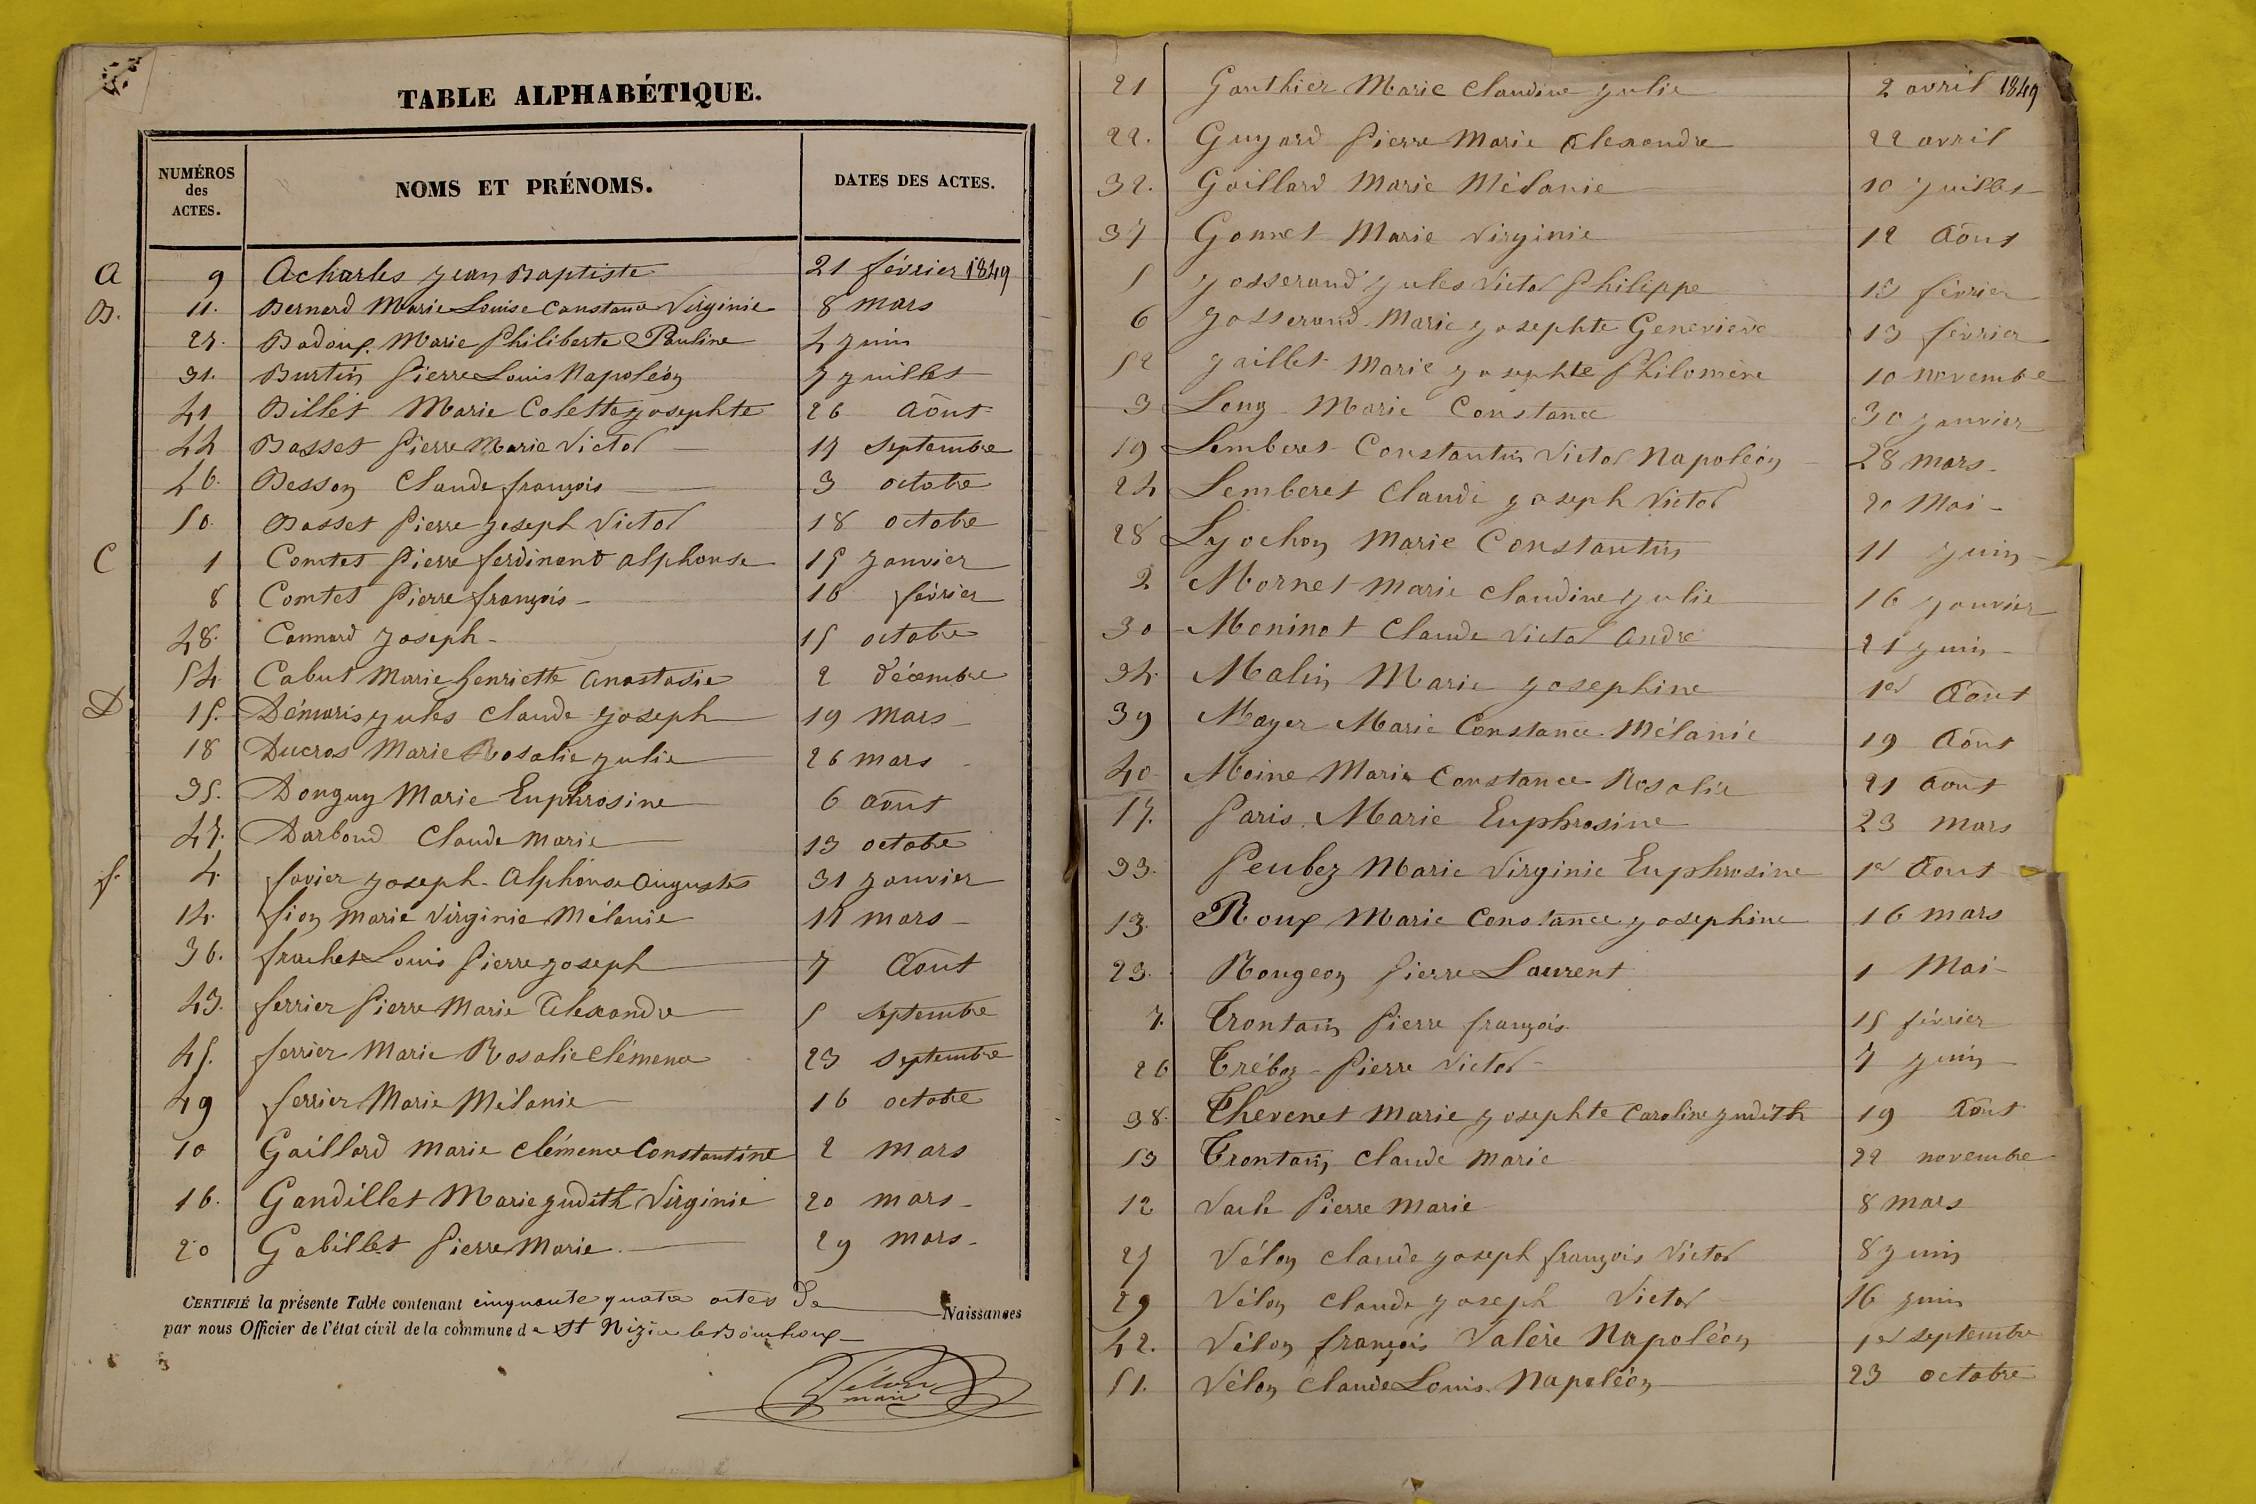 TABLE ALPHABÉTIQUE.
NUMÉROS des ACTES. NOMS ET PRÉNOMS. DATES DES ACTES.
A 9 Acharles Jean Baptiste 21 février 1849
B. 11. Bernard Marie Louise Constance Virginie 8 mars
25. Badoux Marie Philiberte Pauline 4 juin
31. Burtin Pierre Louis Napoléon 7 juillet
41 Billet Marie Colette Josephte 26 Aout
44 Basset Pierre Marie Victor 17 septembre
46. Besson Claude françois 3 octobre
50. Basset Pierre Joseph Victor 18 octobre
C 1 Comtet Pierre ferdinand alphonse 15 janvier
8 Comtet Pierre françois 16 février
48. Cannard Joseph 15 octobre
54. Cabut Marie henriette anastasie 2 décembre
D 15. Démaris Jules Claude Joseph 19 mars
18 Ducros Marie Rosalie Julie 26 mars
35. Donguy Marie Euphrosine 6 aout
47. Darbond Claude Marie 13 octobre
f. 4. favier Joseph Alphonse Auguste 31 janvier
14. fion Marie Virginie Mélanie 11 mars
36. frachet Louis Pierre Joseph 7 Aout
43. ferrier Pierre Marie Alexandre 5 septembre
45. ferrier Marie Rosalie Clémence 23 septembre
49 ferrier Marie Mélanie 16 octobre
10 Gaillard Marie Clémence Constantine 2 mars
16. Gandillet Marie Judith Virginie 20 mars
20 Gabillet Pierre Marie 29 mars
CERTIFIÉ la présente Table contenant cinquante quatre actes de Naissances
par nous Officier de l'état civil de la commune de St Nizier le Bouchoux
Vélon
maire
21 Gauthier Marie Claudine Julie 2 avril 1849
22. Guyard Pierre Marie Alexandre 22 avril
32. Gaillard Marie Mélanie 10 Juillet
37 Gonnet Marie Virginie 12 Aout
5 Josserand Jules Victor Philippe 13 février
6 Josserand Marie Josephte Geneviève 13 février
52 Jaillet Marie Josephte Philomène 10 novembre
3 Long Marie Constance 30 janvier
19 Lemberet Constantin Victor Napoléon 28 mars
24 Lemberet Claude Joseph Victor 20 Mai
28 Lyochon Marie Constantin 11 juin
2 Mornet Marie Claudine Julie 16 janvier
30 Moninot Claude Victor André 21 juin
34. Malin Marie Josephine 1er Aout
39 Mayer Marie Constance Mélanie 19 Aout
40 Moine Marie Constance Rosalie 21 aout
17. Paris Marie Euphrosine 23 mars
33. Peubez Marie Virginie Euphrosine 1er Aout
13. Roux Marie Constance Josephine 16 mars
23. Rougeon Pierre Laurent 1 Mai
7. Trontain Pierre françois 15 février
26 Tréboz Pierre Victor 7 juin
38. Thevenet Marie Josephte Caroline Judith 19 Aout
53 Trontain Claude Marie 22 novembre
12 Vach Pierre Marie 8 mars
27 Vélon Claude Joseph françois Victor 8 juin
29 Vélon Claude Joseph Victor 16 juin
42. Vélon françois Valère Napoléon 1er septembre
51. Vélon Claude Louis Napoléon 23 octobre